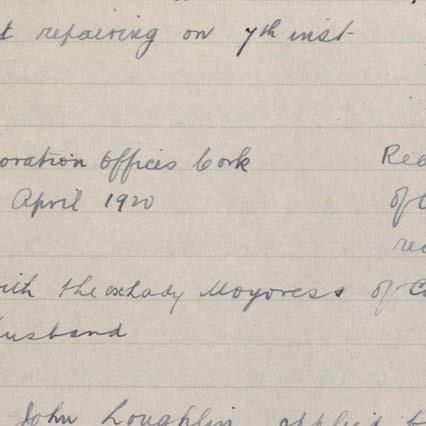 t repairing on 7th inst
oration Offices Cork
Rec
April 1920
of C
rec
with the exlady Mayoress of Co
husband
John Loughlin applied